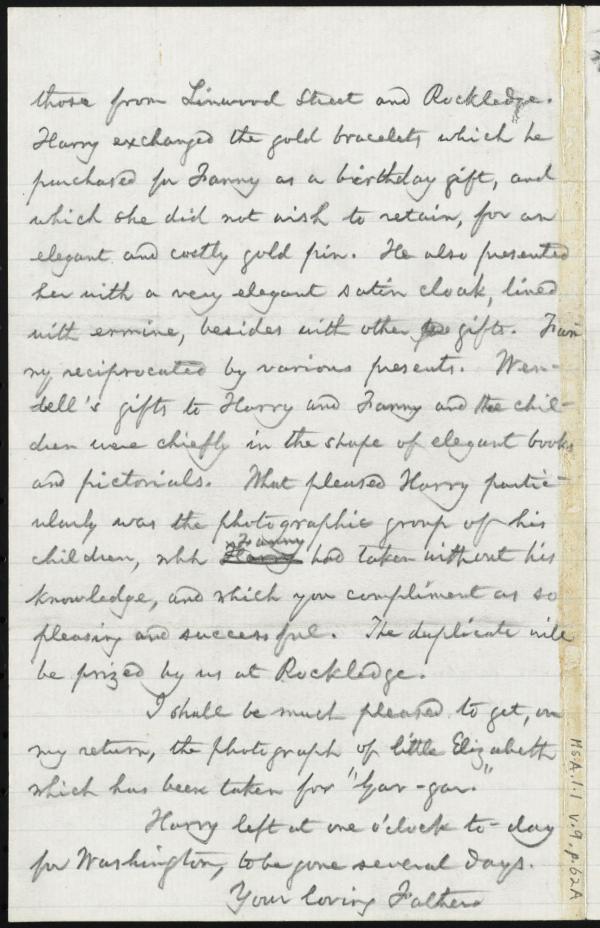 those from Linwood Street and Rockledge.
Harry exchanged the gold bracelets which he
purchased for Fanny as a birthday gift, and
which she did not wish to retain, for an
elegant and costly gold pin. He also presented
her with a very elegant satin cloak, lined
with ermine, besides with other gifts. Fan
ny reciprocated by various presents. Wen-
dell's gifts to Harry and Fanny and the chil-
dren were chiefly in the shape of elegant books
and pictorials. What pleased Harry partic-
ularly was the photographic group of his
Fanny
children, whh Harry had taken without his
knowledge, and which you compliment as so
pleasing and successful. The duplicate will
be prized by us at Rockledge.
I shall be much pleased to get, on
my return, the photograph of little Elizabeth
which has been taken for "Gar-gar."
Harry left at one o'clock to-day
for Washington, to be gone several days.
Your loving Father.
MsA.1.1 v.9, p.62A